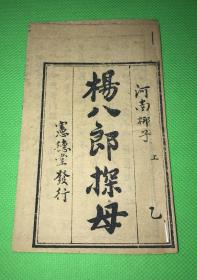 河南梆子
上
乙
楊八郎探母
憲德堂發行